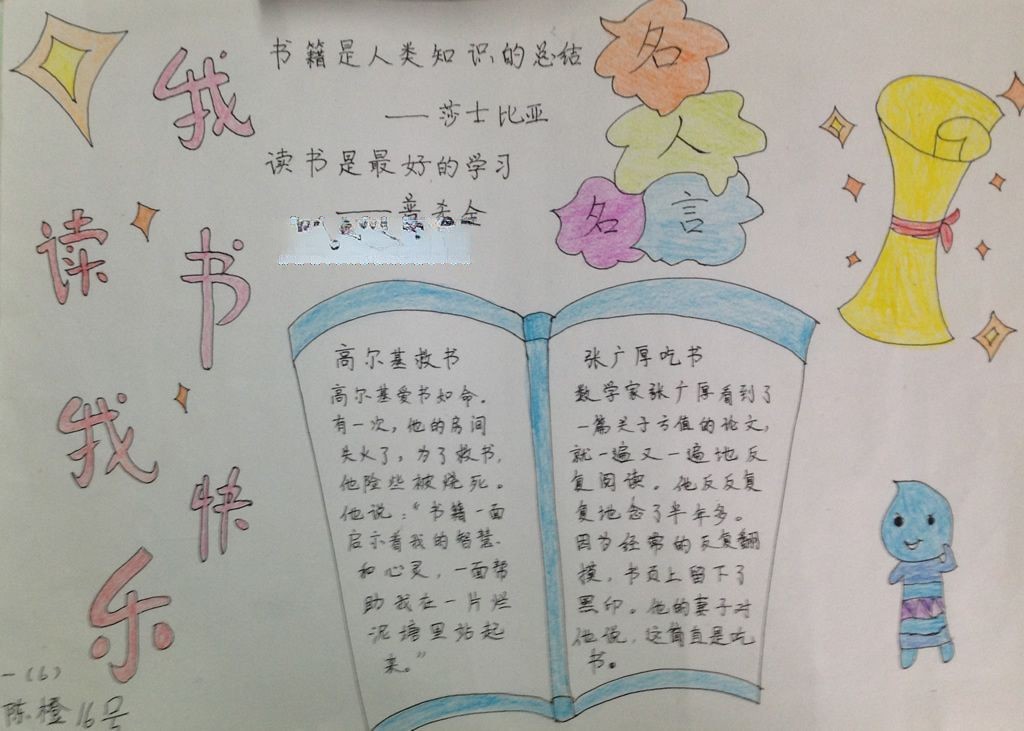 我读书我快乐
书籍是人类知识的总结
——莎士比亚
读书是最好的学习
——普希金
名人名言
高尔基救书
高尔基爱书如命。
有一次，他的房间
失火了，为了救书，
他险些被烧死。
他说：“书籍一面
启示着我的智慧、
和心灵，一面帮
助我在一片烂
泥塘里站起
来。”
张广厚吃书
数学家张广厚看到了
一篇关于亏值的论文，
就一遍又一遍地反
复阅读。他反反复
复地念了半年多。
因为经常的反复翻
摸，书页上留下了
黑印。他的妻子对
他说，这简直是吃
书。
一（6）
陈橙16号